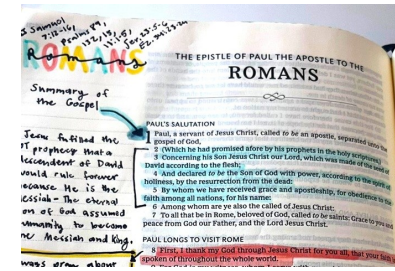 I Samuel
7:12-16,
Psalms 89,
132, 15,
Romans
ROMANS
Summary of
the Gospel
Jesus fulfilled the
OT prophecy that a
descendent of David
would rule forever
because He is the
Messiah - The eternal
Son of God assumed
humanity to become
the Messiah and King.
always
about
THE EPISTLE OF PAUL THE APOSTLE TO THE
ROMANS
PAUL'S SALUTATION
1 Paul, a servant of Jesus Christ, called to be an apostle, separated unto the
gospel of God,
2 (Which he had promised afore by his prophets in the holy scriptures,)
3 Concerning his Son Jesus Christ our Lord, which was made of the seed of
David according to the flesh;
4 And declared to be the Son of God with power, according to the spirit of
holiness, by the resurrection from the dead:
5 By whom we have received grace and apostleship, for obedience to the
faith among all nations, for his name:
6 Among whom are ye also the called of Jesus Christ:
7 To all that be in Rome, beloved of God, called to be saints: Grace to you and
peace from God our Father, and the Lord Jesus Christ.
PAUL LONGS TO VISIT ROME
8 First, I thank my God through Jesus Christ for you all, that your faith is
spoken of throughout the whole world.